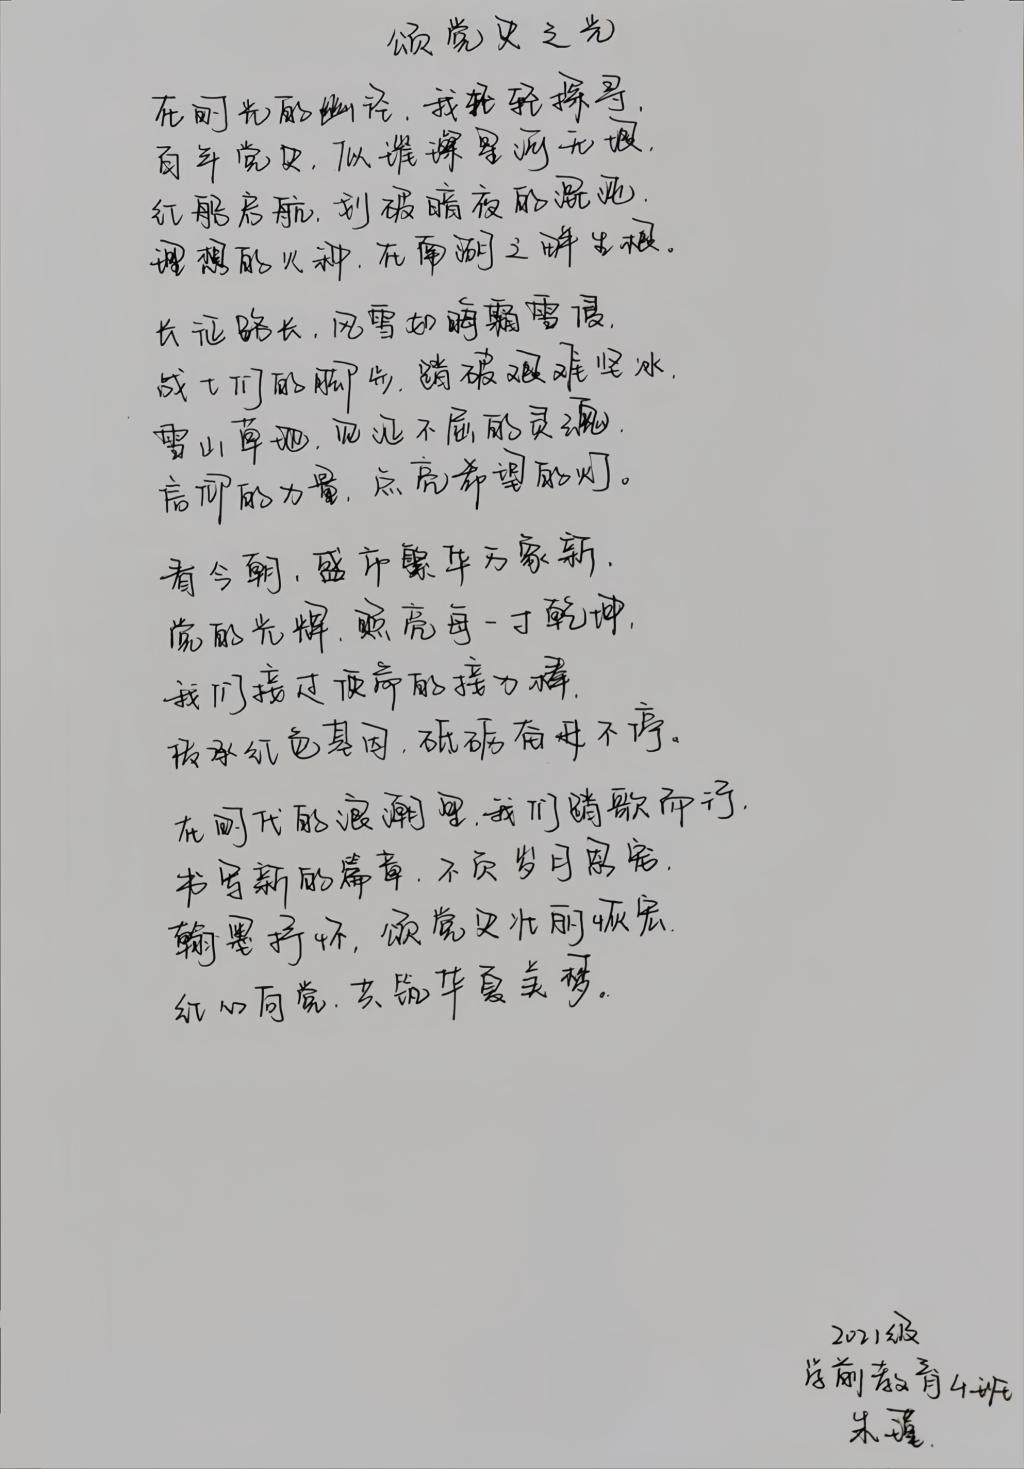 颂党史之光
在时光的幽径，我轻轻探寻，
百年党史，似璀璨星河无垠，
红船启航，划破暗夜的混沌，
理想的火种，在南湖之畔生根。
长征路长，风雪如晦霜雪侵，
战士们的脚步，踏破艰难坚冰，
雪山草地，见证不屈的灵魂，
信仰的力量，点亮希望的灯。
看今朝，盛市繁华万家新，
党的光辉，照亮每一寸乾坤，
我们接过使命的接力棒，
传承红色基因，砥砺奋进不停。
在时代的浪潮里，我们踏歌而行，
书写新的篇章，不负岁月恩宠，
翰墨抒怀，颂党史壮丽恢宏，
红心向党，共筑华夏美梦。
2021级
学前教育4班
朱瑾